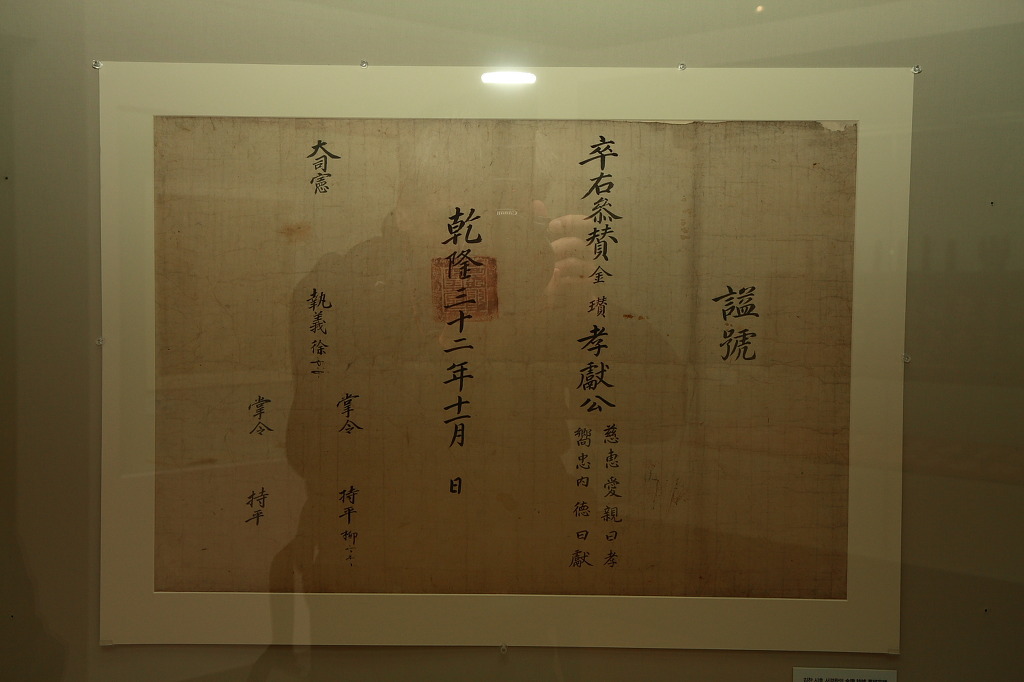 諡號
卒右叅賛金瓚孝獻公
慈惠愛親曰孝
嚮忠內德曰獻
乾隆三十二年十一月 日
大司憲
執義徐
掌令
持平柳
掌令
持平